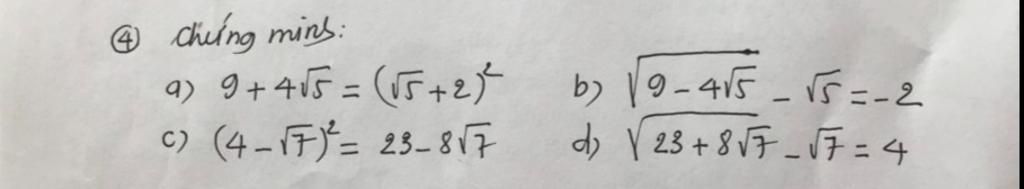 ④ Chứng minh:
a) 9 + 4√5 = (√5 + 2)² b) √(9 - 4√5) - √5 = -2
c) (4 - √7)² = 23 - 8√7 d) √(23 + 8√7) - √7 = 4